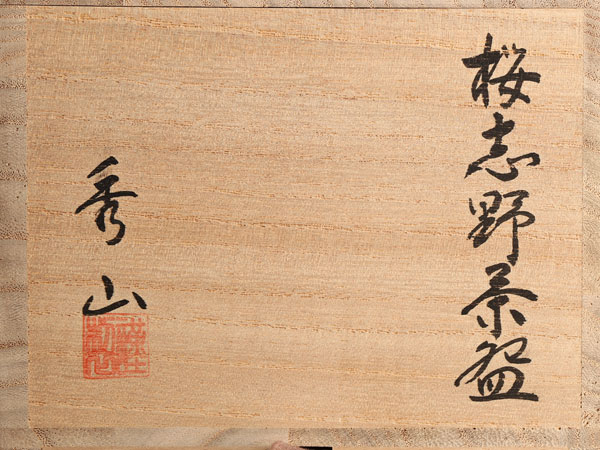 桜志野茶盌
秀山